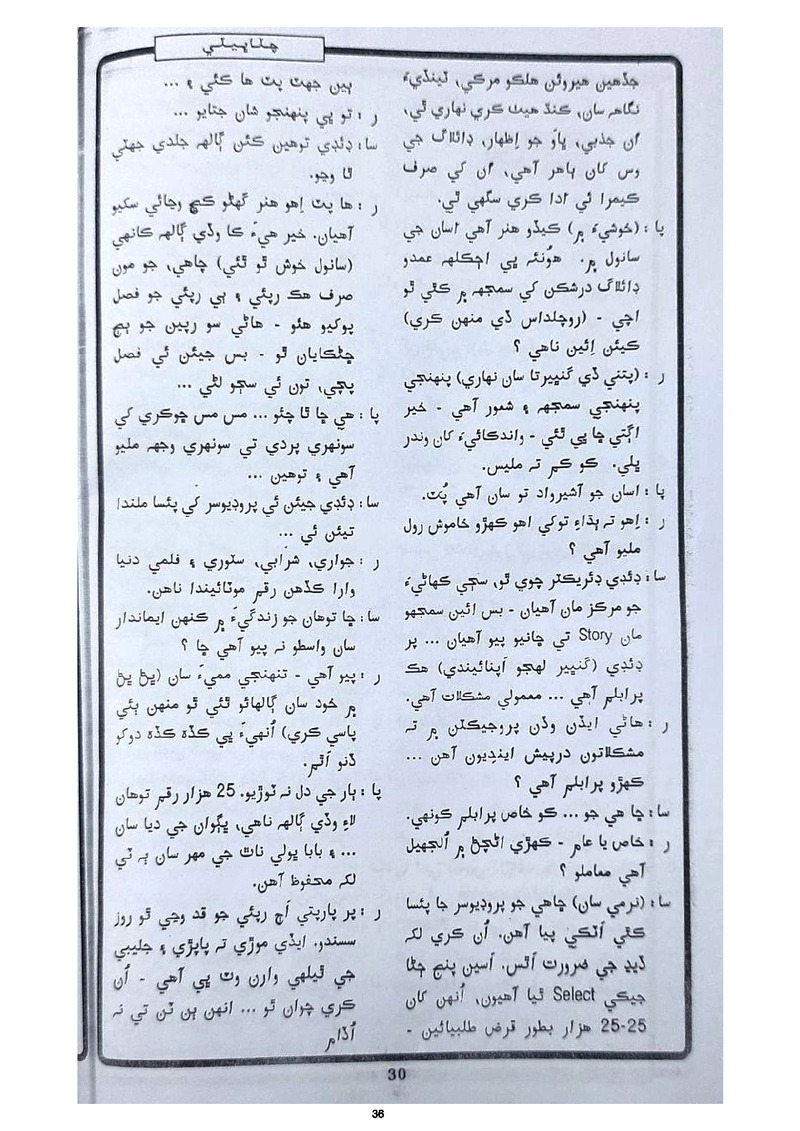 چٽاڀيٽي
جڏهين هيروئن هلڪو مرڪي، ٽيڏيءَ
نگاهہ سان، ڪنڌ هيٺ ڪري نهاري ٿي،
اُن جذبي، ڀاوَ جو اِظهار، ڊائلاگ جي
وس کان ٻاهر آهي، اُن کي صرف
ڪيمرا ئي ادا ڪري سگهي ٿي.
پا : (خوشيءَ ۾) ڪيڏو هنر آهي اسان جي
سانول ۾. هوُنئہ ڀي اڄڪلهہ عمدو
ڊائلاگ درشڪن کي سمجهہ ۾ ڪٿي ٿو
اچي - (روچلداس ڏي منهن ڪري)
ڪيئن اِئين ناهي ؟
ر : (پتني ڏي گنڀيرتا سان نهاري) پنهنجي
پنهنجي سمجهہ ۽ شعور آهي - خير
اڳتي ڇا ڀي ٿئي - واندڪائيءَ کان وندر
ڀلي. ڪو ڪم تہ مليس.
پا : اسان جو آشيرواد تو سان آهي پُٽ.
ر : اِهو تہ ٻڌاءِ توکي اهو ڪهڙو خاموش رول
مليو آهي ؟
سا: ڊئڊي ڊئريڪٽر چوي ٿو، سڄي ڪهاڻيءَ
جو مرڪز مان آهيان - بس ائين سمجهو
مان Story تي ڇانيو پيو آهيان ... پر
ڊئڊي (گنڀير لهجو اَپنائيندي) هڪ
پرابلم آهي ... معمولي مشڪلات آهي.
ر : هاڻي ايڏن وڏن پروجيڪٽن ۾ تہ
مشڪلاتون درپيش اينديون آهن ...
ڪهڙو پرابلم آهي ؟
سا: ڇا هي جو ... ڪو خاص پرابلم ڪونهي.
ر : خاص يا عام - ڪهڙي اڻڇڻ ۾ اُلجهيل
آهي معاملو ؟
سا: (نرمي سان) ڇاهي جو پروڊيوسر جا پئسا
ڪٿي اَٽڪي پيا آهن. اُن ڪري لکہ
ڏيڍ جي ضرورت اَٿس. اَسين پنج ڄڻا
جيڪي Select ٿيا آهيون، اُنهن کان
25-25 هزار بطور قرض طلبيائين -
ٻين جهٽ پٽ ها ڪئي ۽ ...
ر : تو ڀي پنهنجو شان جتايو ...
سا: ڊئڊي توهين ڪئن ڳالهہ جلدي جهٽي
ٿا وڃو.
ر : ها پٽ اِهو هنر گهڻو ڪڇ وڃائي سکيو
آهيان. خير هيءَ ڪا وڏي ڳالهہ ڪانهي
(سانول خوش ٿو ٿئي) ڇاهي، جو مون
صرف هڪ رپئي ۽ ٻي رپئي جو فصل
پوکيو هئو - هاڻي سو رپين جو ٻج
ڇٽڪايان ٿو - بس جيئن ئي فصل
پچي، تون ئي سڄو لڻي ...
پا : هي ڇا ٿا چئو ... مس مس ڇوڪري کي
سونهري پردي تي سونهري وجهہ مليو
آهي ۽ توهين ...
سا: ڊئڊي جيئن ئي پروڊيوسر کي پئسا ملندا
تيئن ئي ...
ر : جواري، شرابي، سٽوري ۽ فلمي دنيا
وارا ڪڏهن رقم موٽائيندا ناهن.
سا: ڇا توهان جو زندگيءَ ۾ ڪنهن ايماندار
سان واسطو نہ پيو آهي ڇا ؟
ر : پيو آهي - تنهنجي مميءَ سان (ڀڻ ڀڻ
۾ خود سان ڳالهائو ٿئي ٿو منهن ٻئي
پاسي ڪري) اُنهيءَ ڀي ڪڏهہ ڪڏهہ دوکو
ڏنو اَٿم.
پا : ٻار جي دل نہ ٽوڙيو. 25 هزار رقم توهان
لاءِ وڏي ڳالهہ ناهي، ڀڳوان جي ديا سان
... ۽ بابا ڀولي ناٿ جي مهر سان ٻہ ٽي
لکہ محفوظ آهن.
ر : پر پارپتي اَڄ رپئي جو قد وڃي ٿو روز
سسندو. ايڏي موڙي تہ پاپڙي ۽ جليبي
جي ٿيلهي وارن وٽ ڀي آهي - اُن
ڪري چوان ٿو ... انهن ٻن ٽن تي نہ
اُڏام
30
36